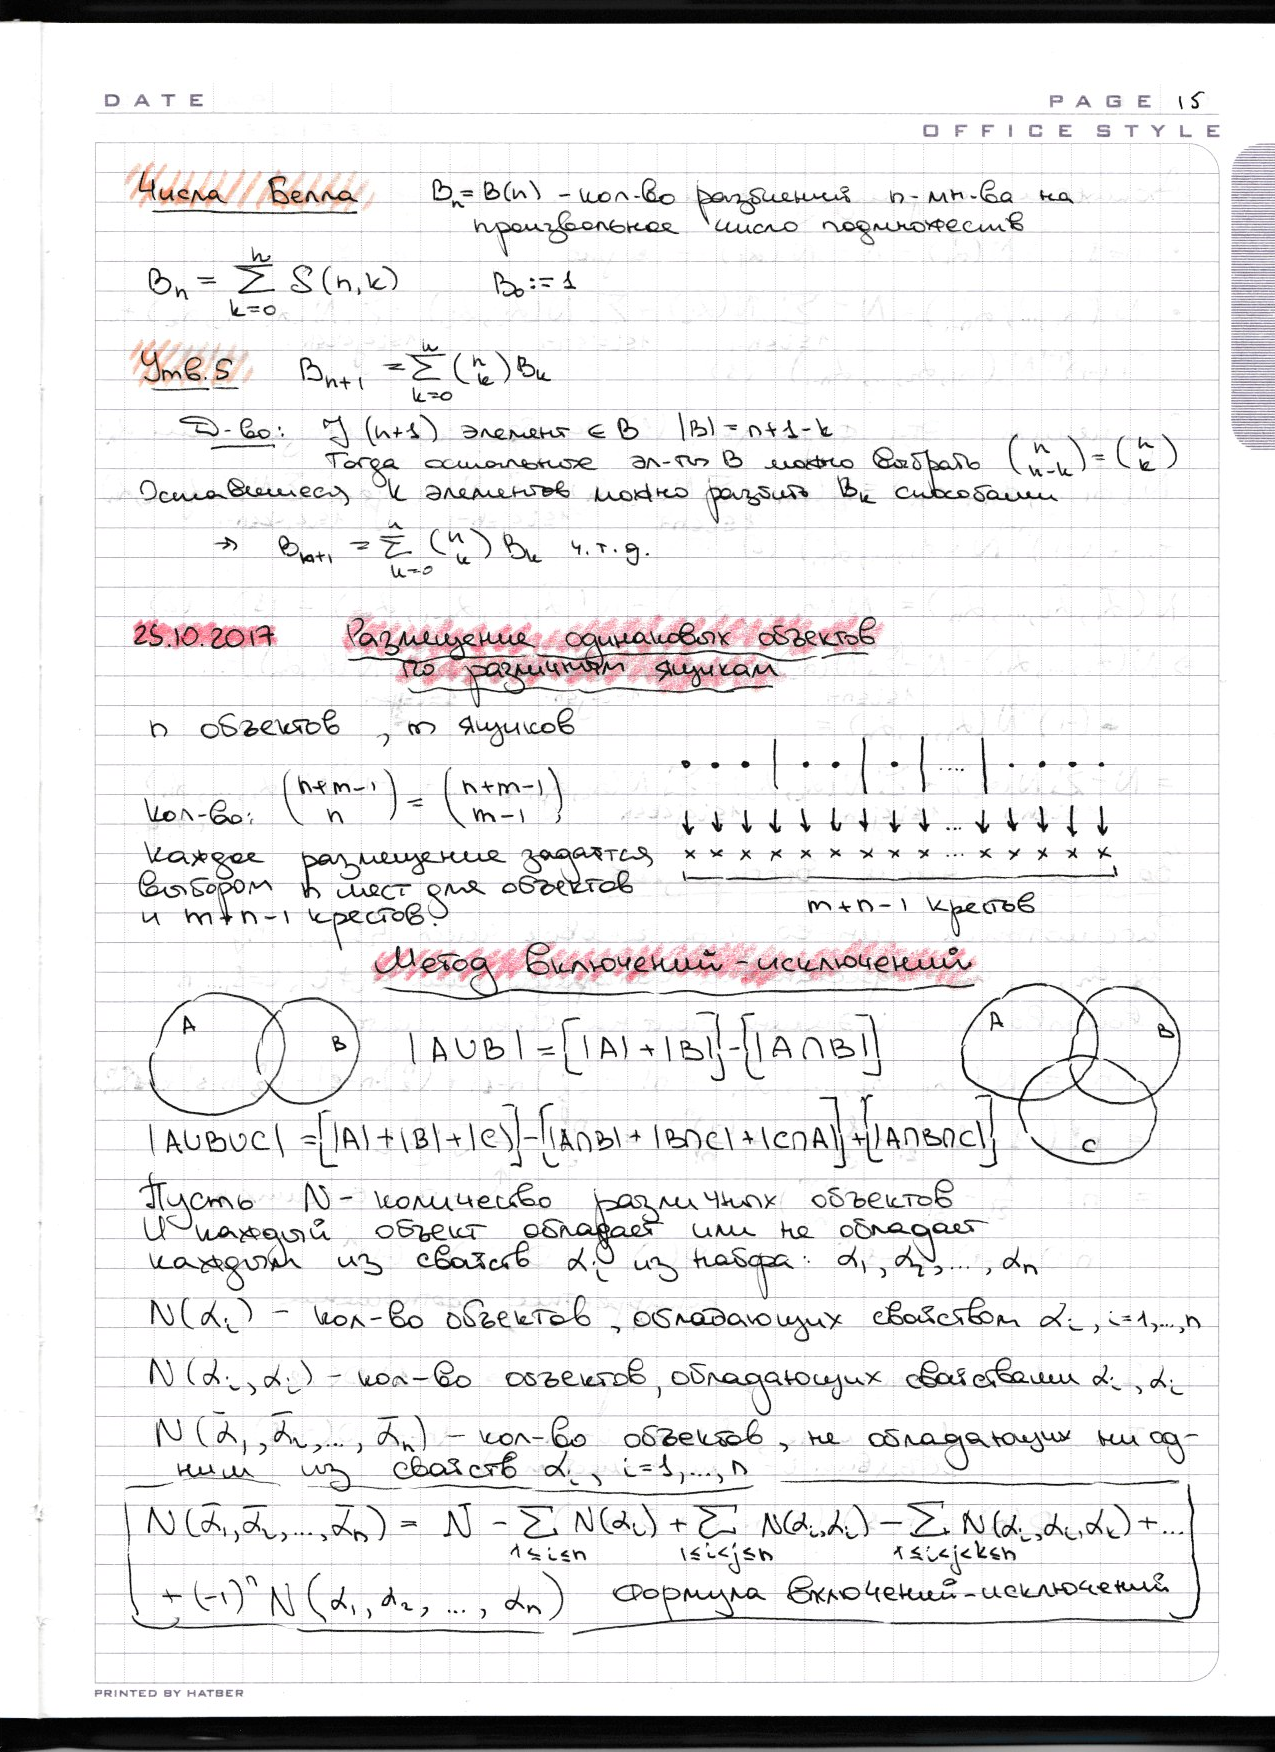 DATE
PAGE 15
OFFICE STYLE
Числа Белла Bₙ = B(n) – кол-во разбиений n-мн-ва на
произвольное число подмножеств
Bₙ = ∑ₖ₌₀ⁿ S(n,k) B₀ := 1
Утв.5 Bₙ₊₁ = ∑ₖ₌₀ⁿ (n k) Bₖ
Д-во: ] (n+1) элемент ∈ B |B| = n+1-k
Тогда остальные эл-ты B можно выбрать (n n-k) = (n k)
Оставшиеся k элементов можно разбить Bₖ способами
⇒ Bₙ₊₁ = ∑ₖ₌₀ⁿ (n k) Bₖ ч.т.д.
25.10.2017 Размещение одинаковых объектов
по различным ящикам
n объектов, m ящиков
• • • | • • | • | .... | • • • •
Кол-во: (n+m-1 n) = (n+m-1 m-1)
↓ ↓ ↓ ↓ ↓ ↓ ↓ ↓ ↓ ... ↓ ↓ ↓ ↓ ↓
Каждое размещение задаётся
× × × × × × × × × ... × × × × ×
выбором n мест для объектов
и m+n-1 крестов.
m+n-1 крестов
Метод включений-исключений
A B
|A∪B| = [|A|+|B|]-[|A∩B|]
A B C
|A∪B∪C| = [|A|+|B|+|C|]-[|A∩B|+|B∩C|+|C∩A|]+[|A∩B∩C|]
Пусть N – количество различных объектов
И каждый объект обладает или не обладает
каждым из свойств αᵢ из набора: α₁, α₂, ..., αₙ
N(αᵢ) – кол-во объектов, обладающих свойством αᵢ, i=1,...,n
N(αᵢ, αⱼ) – кол-во объектов, обладающих свойствами αᵢ, αⱼ
N(ᾱ₁, ᾱ₂, ..., ᾱₙ) – кол-во объектов, не обладающих ни од-
ним из свойств αᵢ, i=1,...,n
N(ᾱ₁, ᾱ₂, ..., ᾱₙ) = N - ∑ N(αᵢ) + ∑ N(αᵢ,αⱼ) - ∑ N(αᵢ,αⱼ,αₖ) + ...
1≤i≤n 1≤i<j≤n 1≤i<j<k≤n
+ (-1)ⁿ N(α₁, α₂, ..., αₙ) Формула включений-исключений
PRINTED BY HATBER